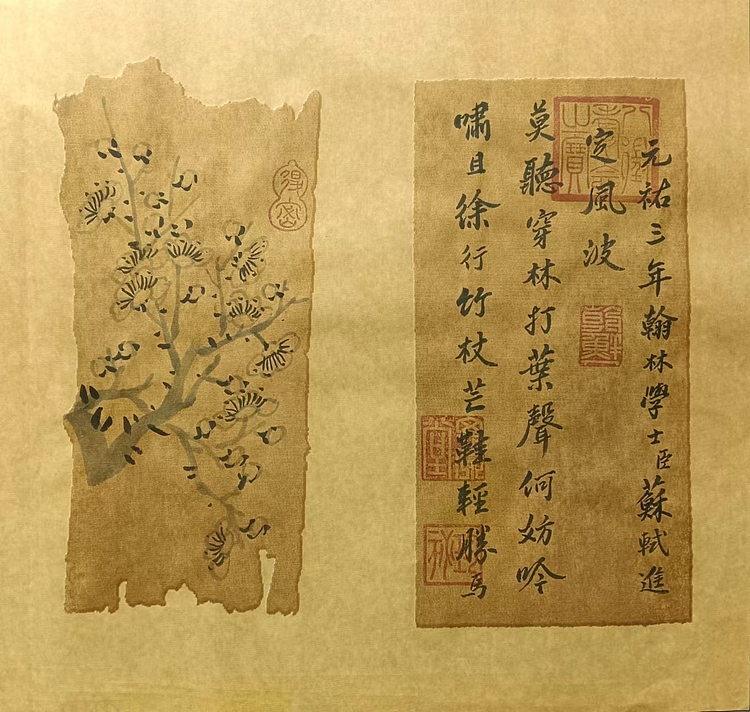 元祐三年翰林學士臣蘇軾進
定風波
莫聽穿林打葉聲何妨吟
嘯且徐行竹杖芒鞋輕勝馬